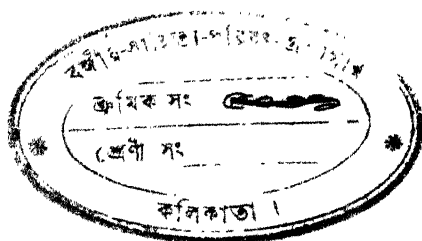 বঙ্গীয়-সাহিত্য-পরিষৎ
ক্রমিক সং
শ্রেণী সং
কলিকাতা ।